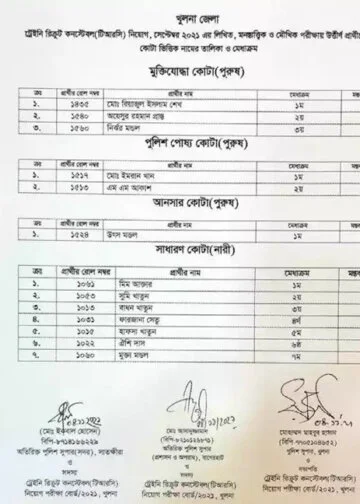 খুলনা জেলা
ট্রেইনি রিক্রুট কনস্টেবল(টিআরসি) নিয়োগ, সেপ্টেম্বর ২০২১ এর লিখিত, মনস্তাত্ত্বিক ও মৌখিক পরীক্ষায় উত্তীর্ণ প্রার্থীর
কোটা ভিত্তিক নামের তালিকা ও মেধাক্রম
মুক্তিযোদ্ধা কোটা(পুরুষ)
ক্রঃ প্রার্থীর রোল নম্বর প্রার্থীর নাম মেধাক্রম
১. ১৪৩৫ মোঃ রিয়াজুল ইসলাম শেখ ১ম
২. ১৫৪০ রহমান ২য়
৩. ১৫৬০ নির্ঝর মন্ডল ৩য়
পুলিশ পোষ্য কোটা(পুরুষ)
ক্রঃ প্রার্থীর রোল নম্বর প্রার্থীর নাম মেধাক্রম
১. ১৫১৭ মোঃ ইমরান খান ১ম
২. ১৫১৩ এম এম আকাশ ২য়
আনসার কোটা(পুরুষ)
ক্রঃ প্রার্থীর রোল নম্বর প্রার্থীর নাম মেধাক্রম
১. ১৫২৪ উৎস মন্ডল ১ম
সাধারণ কোটা(নারী)
ক্রঃ প্রার্থীর রোল নম্বর প্রার্থীর নাম মেধাক্রম মন্তব
১. ১০৬১ মিম আক্তার ১ম
২. ১০৫৩ সুমি খাতুন ২য়
৩. ১০১৩ খাতুন ৩য়
৪. ১০৩১ ফারজানা সেতু ৪র্থ
৫. ১০১৫ হাফসা খাতুন ৫ম
৬. ১০২২ ঐশি দাস ৬ষ্ঠ
৭. ১০৬০ মুক্তা মন্ডল ৭ম
(মোঃ ইকবাল হোসেন)
অতিরিক্ত পুলিশ সুপার(সদর), সাতক্ষীরা
ও
সদস্য
ট্রেইনি রিক্রুট কনস্টেবল(টিআরসি)
নিয়োগ পরীক্ষা বোর্ড/২০২১, খুলনা
(মোঃ আসাদুজ্জামান)
অতিরিক্ত পুলিশ সুপার
(প্রশাসন ও অপরাধ), বাগেরহাট
ও
সদস্য
ট্রেইনি রিক্রুট কনস্টেবল(টিআরসি)
নিয়োগ পরীক্ষা বোর্ড/২০২১, খুলনা
মোহাম্মদ মাহবুব হাসান
পুলিশ সুপার, খুলনা
ও
সভাপতি
ট্রেইনি রিক্রুট কনস্টেবল(টিআরসি)
নিয়োগ পরীক্ষা বোর্ড/২০২১, খুলনা